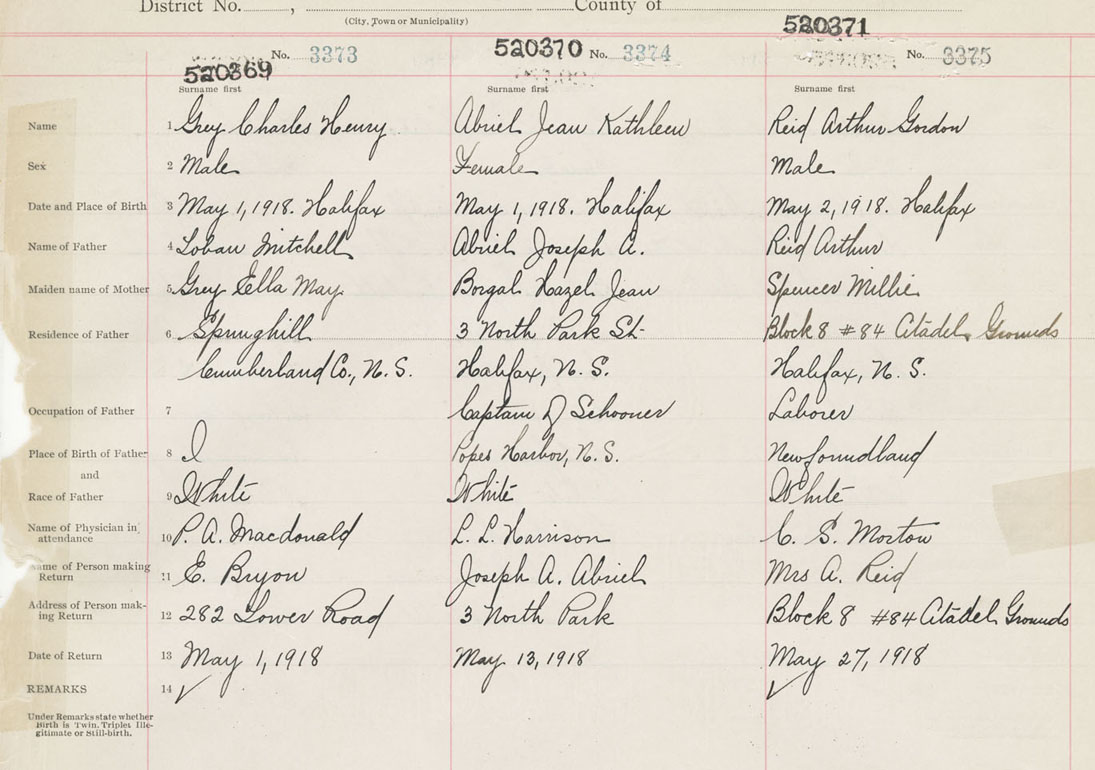 District No. , County of
(City, Town or Municipality)
520369 No. 3373 520370 No. 3374 520371 No. 3375
Surname first Surname first Surname first
Name 1 Grey Charles Henry Abriel Jean Kathleen Reid Arthur Gordon
Sex 2 Male Female Male
Date and Place of Birth 3 May 1, 1918. Halifax May 1, 1918. Halifax May 2, 1918. Halifax
Name of Father 4 Loban Mitchell Abriel Joseph A. Reid Arthur
Maiden name of Mother 5 Grey Ella May Borgal Hazel Jean Spencer Millie
Residence of Father 6 Springhill 3 North Park St Block 8 #84 Citadel Grounds
Cumberland Co., N.S. Halifax, N.S. Halifax, N.S.
Occupation of Father 7 Captain of Schooner Laborer
Place of Birth of Father 8 Popes Harbor, N.S. Newfoundland
and
Race of Father 9 White White White
Name of Physician in
attendance 10 P. A. Macdonald L. L. Harrison C. S. Morton
Name of Person making
Return 11 E. Bryon Joseph A. Abriel Mrs A. Reid
Address of Person mak-
ing Return 12 282 Lower Road 3 North Park Block 8 #84 Citadel Grounds
Date of Return 13 May 1, 1918 May 13, 1918 May 27, 1918
REMARKS 14
Under Remarks state whether
Birth is Twin, Triplet Ille-
gitimate or Still-birth.